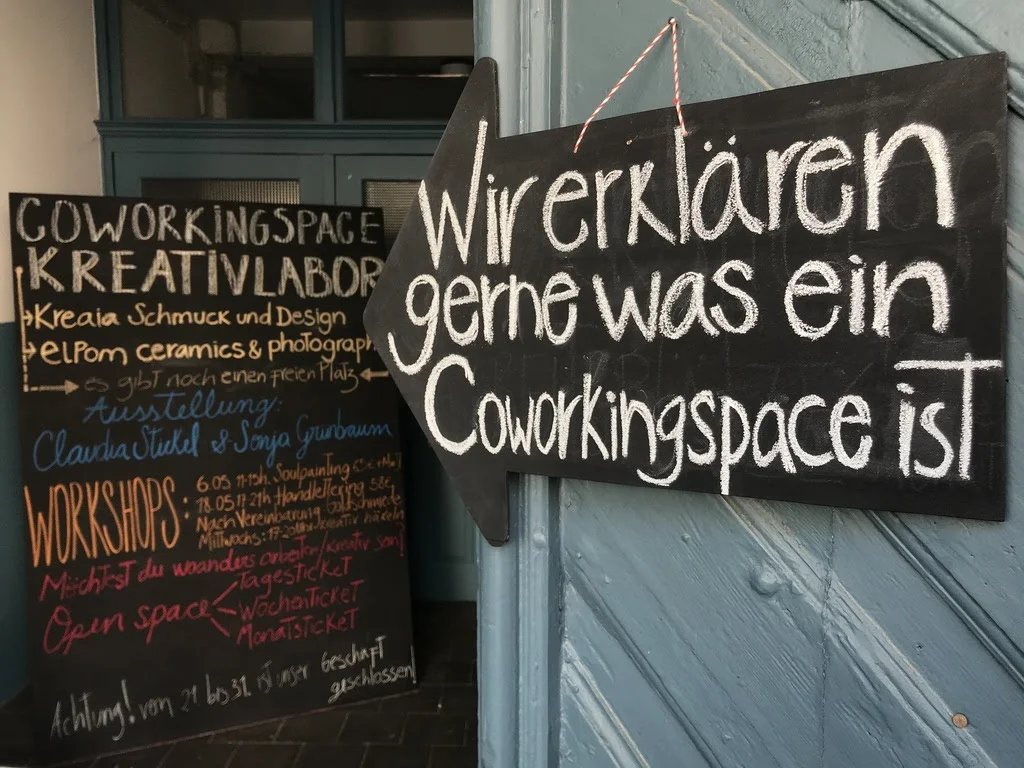 COWORKINGSPACE
KREATIVLABOR
Kreaia Schmuck und Design
elPom ceramics & photograph
es gibt noch einen freien Platz
Ausstellung:
Claudia Stickel & Sonja Grünbaum
WORKSHOPS:
6.05 11-15h. Soulpainting
18.05 17-21h Handlettering 38€
Nach Vereinbarung Goldschmiede
Mittwochs: kreativ häkeln
Möchtest du woanders arbeiten/kreativ sein?
Open space
Tagesticket
Wochenticket
Monatsticket
Achtung! von 21 bis 31. ist unser Geschäft
geschlossen
Wir erklären
gerne was ein
Coworkingspace ist